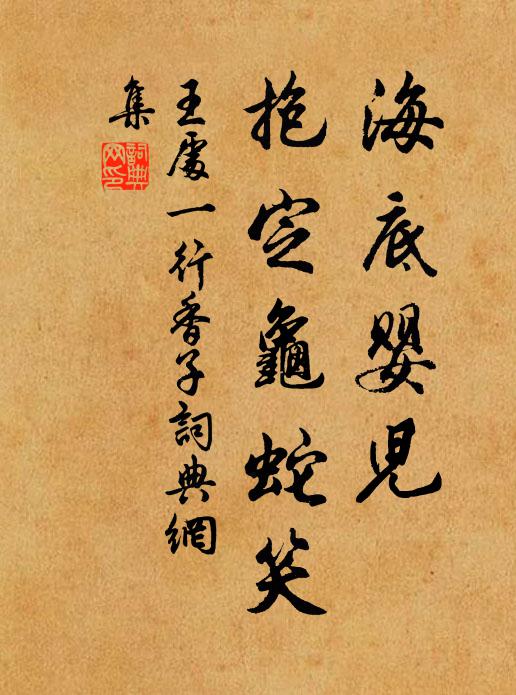 海底嬰児
抱定龜蛇笑
王處一行香子詞典網
集
詞典
网印